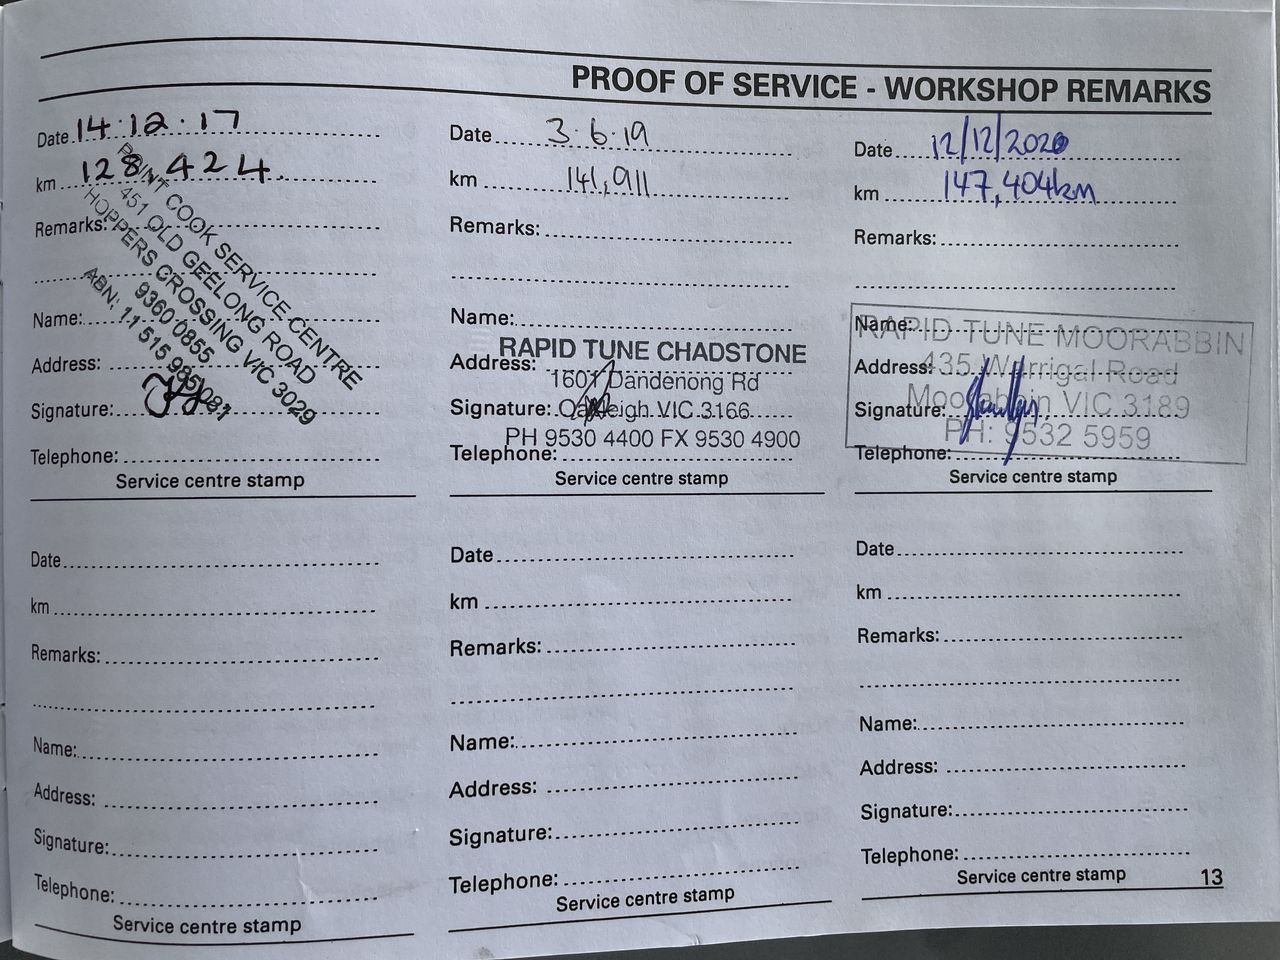 PROOF OF SERVICE - WORKSHOP REMARKS
Date 14.12.17
km 128,424.
Remarks:
Name:
Address:
Signature:
Telephone:
Service centre stamp
POINT COOK SERVICE CENTRE
451 OLD GEELONG ROAD
HOPPERS CROSSING VIC 3029
9360 0855
ABN: 11 515 985 081
Date 3.6.19
km 141,911
Remarks:
Name:
Address:
Signature:
Telephone:
Service centre stamp
RAPID TUNE CHADSTONE
1601 Dandenong Rd
Oakleigh VIC 3166
PH 9530 4400 FX 9530 4900
Date 12/12/2020
km 147,404km
Remarks:
Name:
Address:
Signature:
Telephone:
Service centre stamp
RAPID TUNE MOORABBIN
435 Warrigal Road
Moorabbin VIC 3189
PH: 9532 5959
Date
km
Remarks:
Name:
Address:
Signature:
Telephone:
Service centre stamp
Date
km
Remarks:
Name:
Address:
Signature:
Telephone:
Service centre stamp
Date
km
Remarks:
Name:
Address:
Signature:
Telephone:
Service centre stamp
13